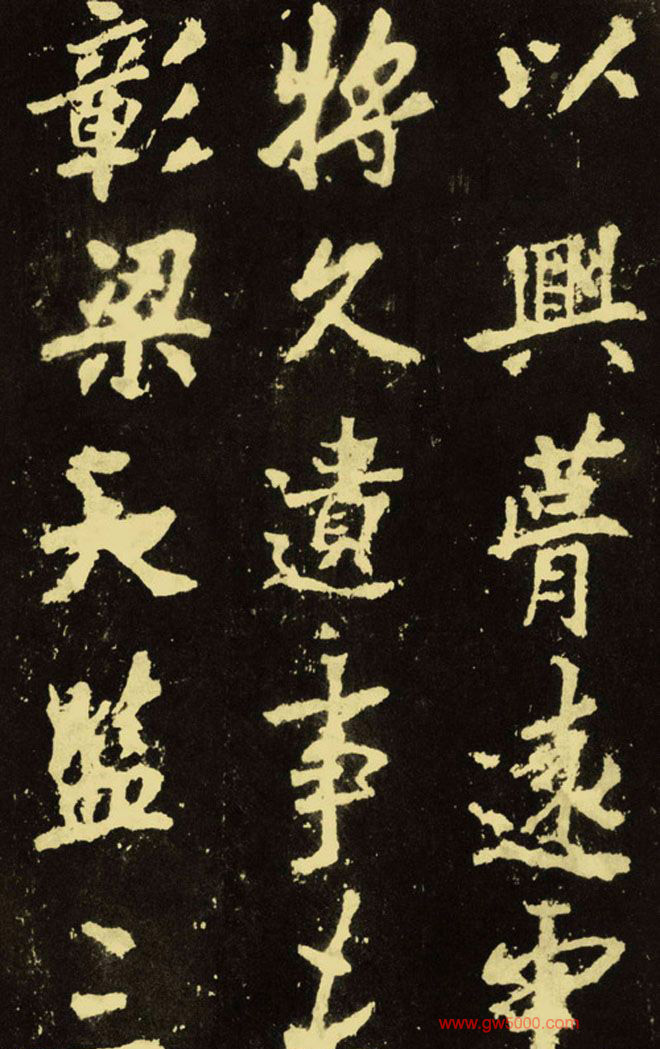 以興瞢遠
將久遺事
彰梁天監三
www.gw5000.com